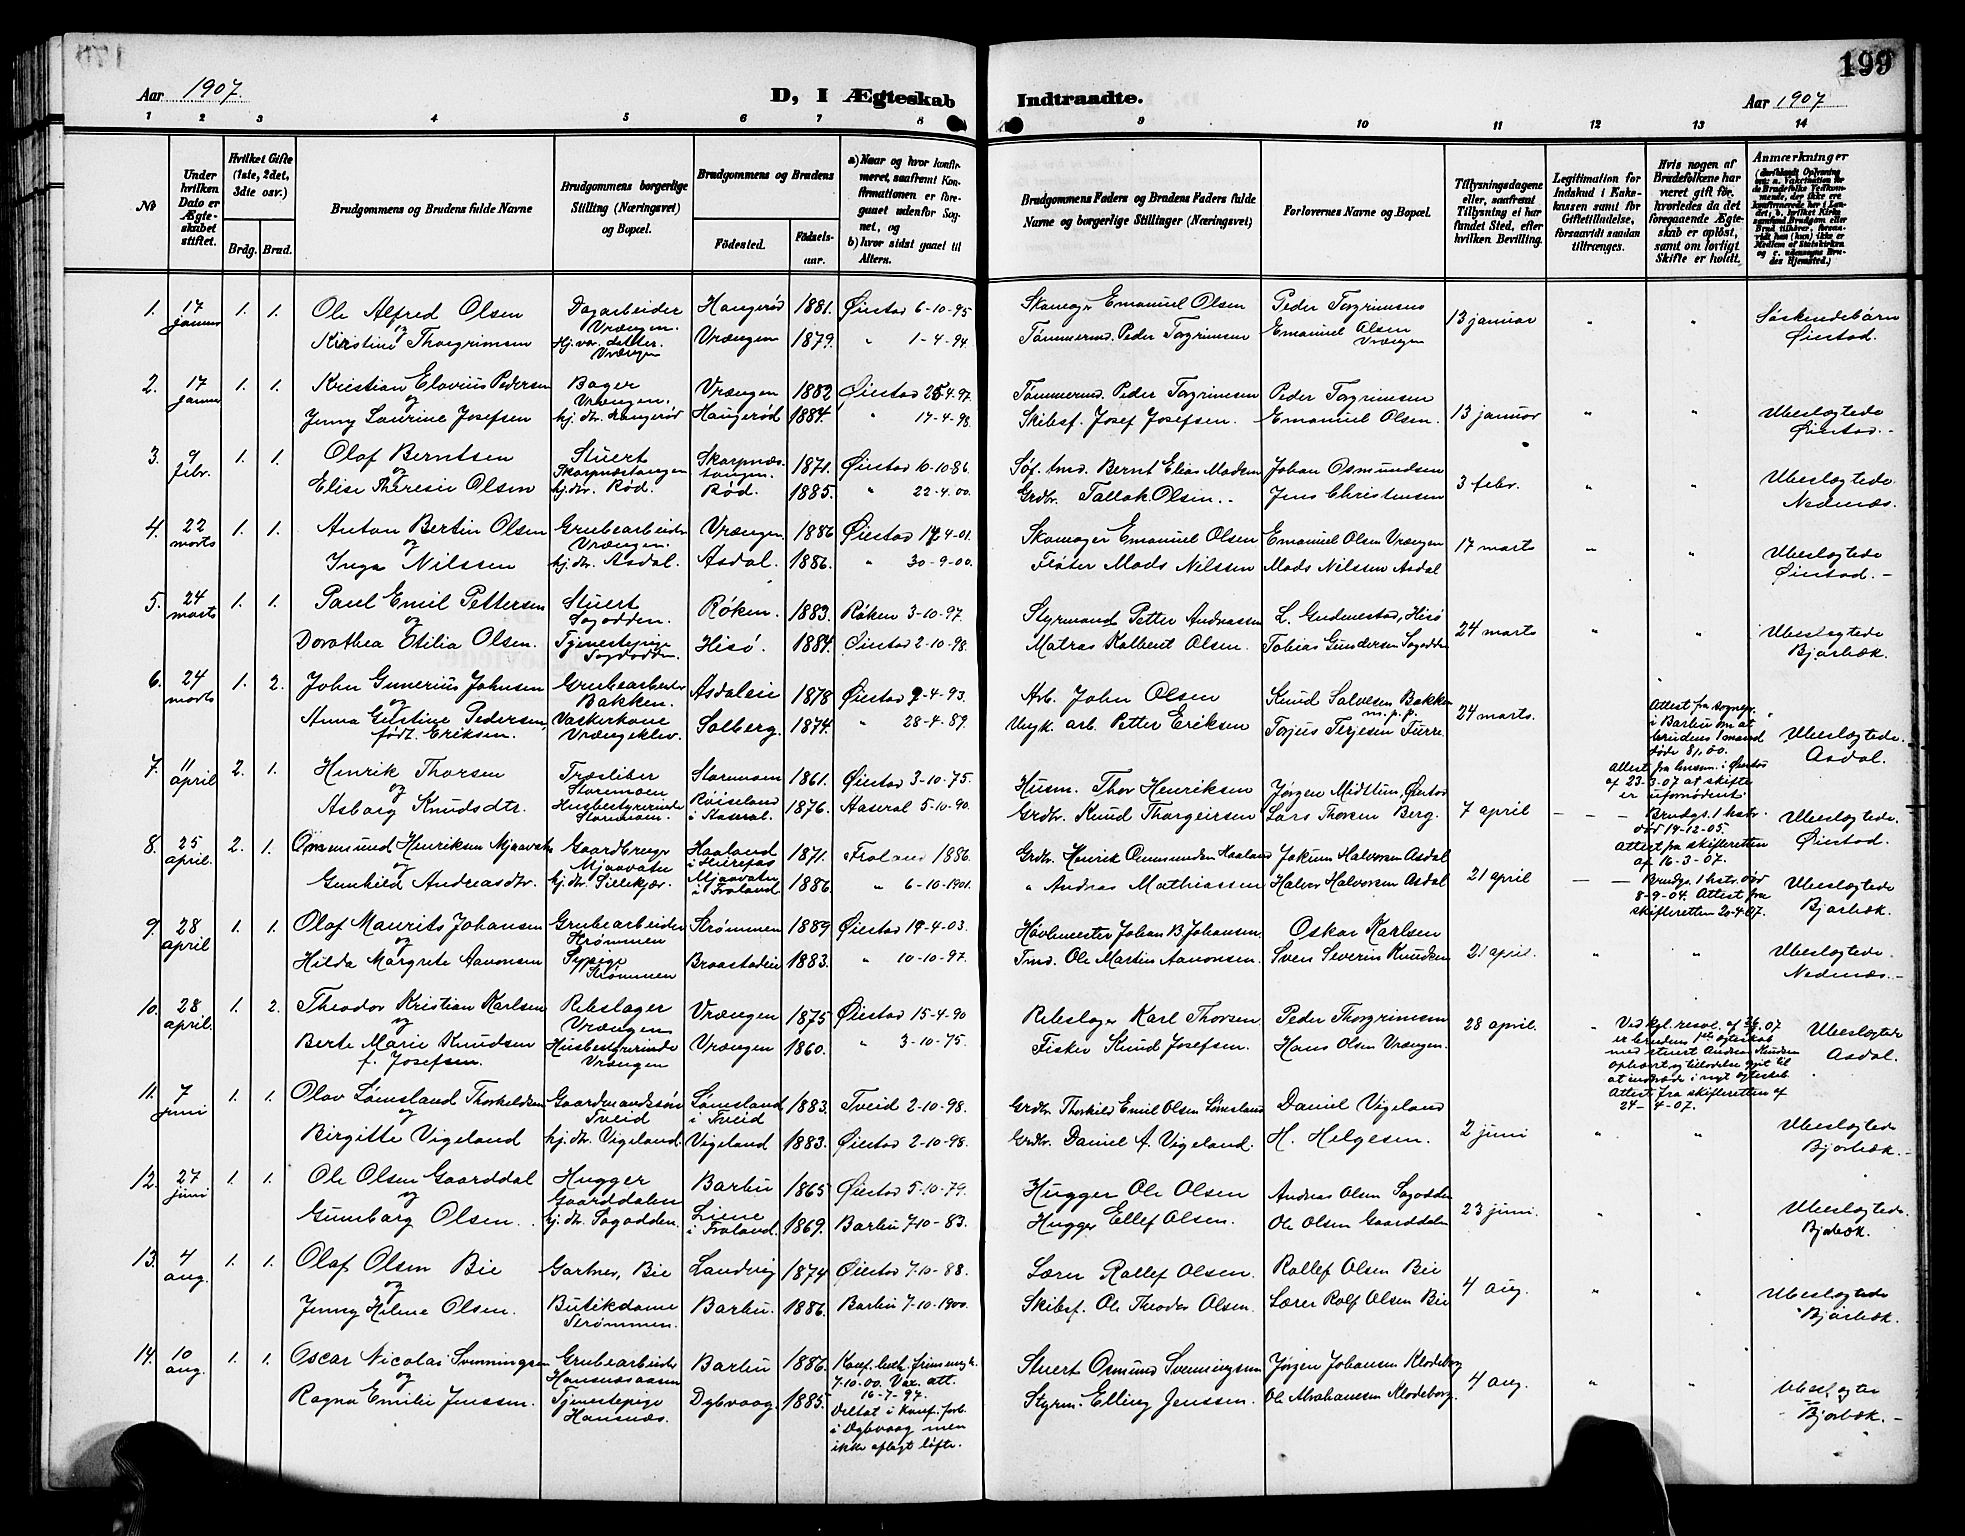 199
Aar 1907.
D, I Ægteskab
Indtraadte.
Aar 1907
1 2 3 4 5 6 7 8 9 10 11 12 13 14
No
Under hvilken Dato er Ægteskabet stiftet.
Hvilket Gifte (1ste, 2det, 3die osv.)
Brdg. Brud.
Brudgommens og Brudens fulde Navne
Brudgommens borgerlige Stilling (Næringsvei) og Bopæl.
Brudgommens og Brudens
Fødested.
Fødselsaar.
a) Naar og hvor konfirmeret, saafremt Konfirmationen er foregaaet udenfor Sognet, og
b) hvor sidst gaaet til Alters.
Brudgommens Faders og Brudens Faders fulde Navne og borgerlige Stillinger (Næringsvei)
Forlovernes Navne og Bopæl.
Tillysningsdagene eller, saafremt Tillysning ei har fundet Sted, efter hvilken Bevilling.
Legitimation for Indskud i Enkekassen samt for Giftetilladelse, forsaavidt saadan tiltrænges.
Hvis nogen af Brudefolkene har været gift før, hvorledes da det foregaaende Ægteskab er opløst, samt om lovligt Skifte er holdt.
Anmærkninger
1. 17 januar 1. 1. Ole Alfred Olsen Dagarbeider Vrængen. Haugerød 1881. Øiestad 6-10-95 Skomager Emanuel Olsen Peder Torgrimsens 13 januar " " Søskendebørn
og Kirstine Thorgrimsen Hj.vær. datter. Vrængen Vrængen 1879. " 1-4-94. Tømmermd. Peder Torgrimsen Emanuel Olsen Vrængen Øiestad.
2. 17 januar 1. 1. Kristian Elovius Pedersen Bager Vrængen. Vrængen 1882 Øiestad 25-4-97. Tømmermd. Peder Torgrimsen Peder Torgrimsen 13 januar " " Ubeslægtede
og Jenny Laurine Josefsen hj. dtr. Haugerød Haugerød 1884. " 17-4-98. Skibsf. Josef Josefsen. Emanuel Olsen. Øiestad.
3. 9 febr. 1. 1. Olaf Berntsen Stuert Skarpnæstangen Skarpnæstangen. 1871. Øiestad 10-10-86. Søf. tmd. Bernt Elias Madsen Johan Osmundsen 3 febr. " " Ubeslægtede
og Elise Theresie Olsen hj.dtr. Rød. Rød. 1885. " 22-4-00. Grdbr. Tallak Olsen. Jens Christensen Nednæs.
4. 22 marts 1. 1. Anton Bertin Olsen Grubearbeider Vrængen. Vrængen 1886 Øiestad 14-4-01. Skomager Emanuel Olsen Emanuel Olsen Vrængen 17 marts " " Ubeslægtede
og Inga Nilssen hj. dtr. Asdal. Asdal. 1886. " 30-9-00. Fløter Mads Nilssen Mads Nilssen Asdal Øiestad.
5. 24 marts 1. 1. Paul Emil Pettersen Stuert Sogodden. Røken. 1883. Røken 3-10-97. Styrmand Petter Andreassen L. Gudmestad, Hisø 24 marts " " Ubeslægtede
og Dorothea Otilia Olsen. Tjenestepige Sogodden. Hisø. 1884. Øiestad 2-10-98. Matros Kolbent Olsen. Tobias Gundersen Sogodden Bjorbæk.
6. 24 marts 1. 2. John Gunerius Johnsen Grubearbeider Bakken. Asdaleie 1878 Øiestad 9-4-93. Arb. John Olsen Knud Salvesen Bakken m.p.p. 24 marts.
og Anna Gurstine Pedersen, født Eriksen. Vaskerkone Vrængeklev. Solberg. 1874. " 28-4-89. Petter Eriksen Torjus Terjesen Furre
Attest fra sognepr. i Barbu om at brudens 1 mand døde 8/1 00. Attest fra lensm. i Øiestad af 23-3-07 at skifte er ufornødent. Ubeslægtede. Asdal.
7. 11 april 2. 1. Henrik Thorsen Træsliber Storemoen Storemoen 1861. Øiestad 3-10-75 Husm. Thor Henriksen Jørgen Midttun, Øiestad 7 april
og Asborg Knudsdtr. Husbestyrerinde Storemoen. Røiseland i Aaseral. 1876. Aaseral 5-10-90. Grdbr. Knud Thorgeirsen Lars Thorsen Berg.
Brudgs. 1 hstr. død 14-12-05. Attest fra skifteretten af 16-3-07. Ubeslægtede. Øiestad.
8. 25 april. 2. 1. Omsmund Henriksen Mjaavatn Gaardbruger Mjaavatn Haaland i Herefos 1871. Froland 1886. Grdbr. Henrik Ommundsen Haaland Jokum Halvorsen Asdal 21 april
Gunhild Andreasdtr. hj. dtr. Sillekjær. Mjaavatn i Froland 1886. " 6-10-1901. " Andreas Mathiassen Halvor Halvorsen Asdal
Brudgs. 1 hstr. død 8-9-04. Attest fra skifteretten 20-4-07. Ubeslægtede Bjorbæk.
9. 28 april 1. 1. Olaf Maurits Johansen Grubearbeider Strømmen Strømmen 1889 Øiestad 19-4-03. Høvlmester Johan B. Johansen. Oskar Karlsen 21 april. " " Ubeslægtede.
og Hilda Margrete Aanonsen Sypige Strømmen Braastadeie 1883. " 10-10-97. Tmd. Ole Martin Aanonsen. Sven Severin Knudsen Nednæs.
10. 28 april. 1. 2. Theodor Kristian Karlsen Rebslager Vrængen Vrængen 1875 Øiestad 15-4-90 Rebslager Karl Thorsen Peder Thorgrimsen 28 april. "
og Berte Marie Knudsen f. Josefsen. Husbestyrerinde Vrængen Vrængen 1860. " 3-10-75. Fisker Knud Josefsen. Hans Olsen Vrængen.
Ved kgl. resol. af 07 er brudens 1ste ægteskab med stuert Andreas Knudsen ophævet og tilladelse givet til at indtræde i nyt ægteskab. Attest fra skifteretten af 24-4-07. Ubeslægtede Asdal.
11. 7 juni 1. 1. Olav Lømsland Thorkildsen Gaardmandssøn Tveid Lømsland i Tveid 1883. Tveid 2-10-98. Grdbr. Thorkild Emil Olsen Lømsland Daniel Vigeland 2 juni " " Ubeslægtede
og Birgitte Vigeland hj. dtr. Vigeland. Vigeland 1883. Øiestad 2-10-98. Grdbr. Daniel A. Vigeland. H. Helgesen. Bjorbæk.
12. 27 juni 1. 1. Ole Olsen Gaarddal Hugger Gaarddalen Barbu 1865 Øiestad 5-10-79. Hugger Ole Olsen Andreas Olsen Sogodden 23 juni. " " Ubeslægtede.
og Gunborg Olsen. hj. dtr. Sogodden. Liene i Froland. 1869. Barbu 7-10-83. Hugger Ellef Olsen. Ole Olsen Gaarddalen Bjorbæk.
13. 4 aug. 1. 1. Olaf Olsen Bie Gartner, Bie Landvig 1874 Øiestad 7-10-88. Lærer Rollef Olsen. Rollef Olsen Bie 4 aug. " " Ubeslægtede
og Jenny Hilma Olsen. Butikdame Strømmen. Barbu. 1886. Barbu 7-10-1900. Skibsf. Ole Theodor Olsen. Lærer Rolf Olsen Bie Bjorbæk.
14. 10 aug. 1. 1. Oscar Nicolai Svenningsen Grubearbeider Hansnæsaasen Barbu 1886. Konf. luth. frimenigh. 7-10-00. Vax. att. 16-7-97. Stuert Osmund Svenningsen Jørgen Johansen Klodeborg 4 aug. " " Ubeslægtede
og Ragna Emilie Jenssen. Tjenestepige Hansnæs. Dybvaag. 1885. Deltat i konf. forb. i Dybvaag men ikke aflagt løfte. Styrm. Elling Jenssen. Ole Abrahamsen Klodeborg. Bjorbæk.